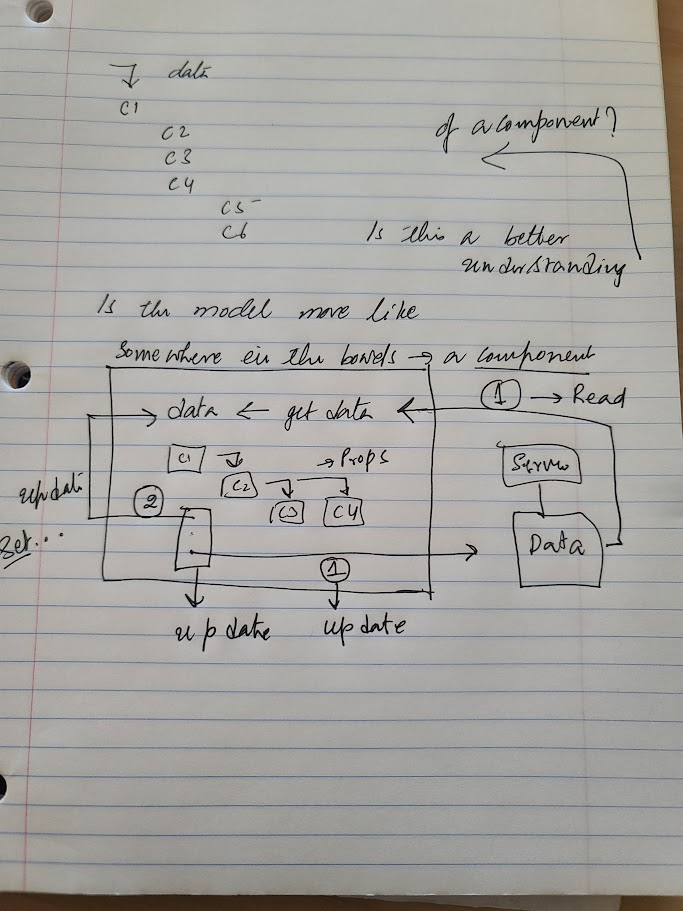 data
C1
C2
C3
C4
C5
C6
of a component?
Is this a better
understanding
Is the model more like
Somewhere in the bowels → a component
1 → Read
data ← get data
C1
→ Props
C2
C3
C4
Server
Data
update
2
set...
1
update
update